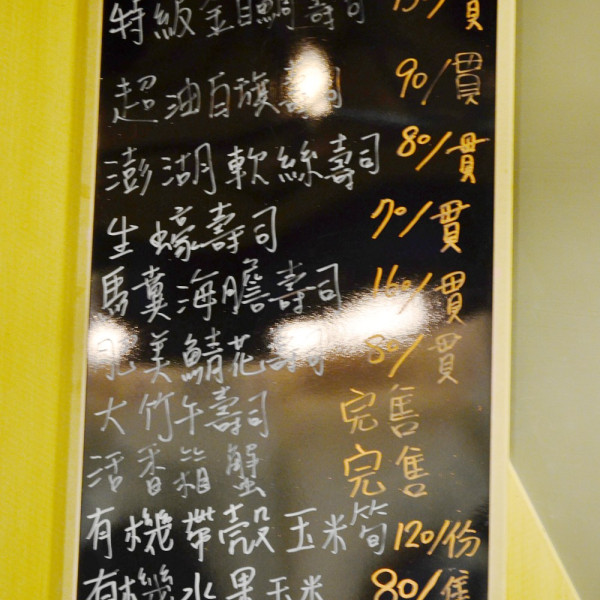 特級金目鯛壽司 130/貫
超油白旗壽司 90/貫
澎湖軟絲壽司 80/貫
生蠔壽司 70/貫
馬糞海膽壽司 160/貫
肥美鯖花壽司 80/貫
大竹午壽司 完售
活香箱蟹 完售
有機帶殼玉米筍 120/份
有機水果玉米 80/隻